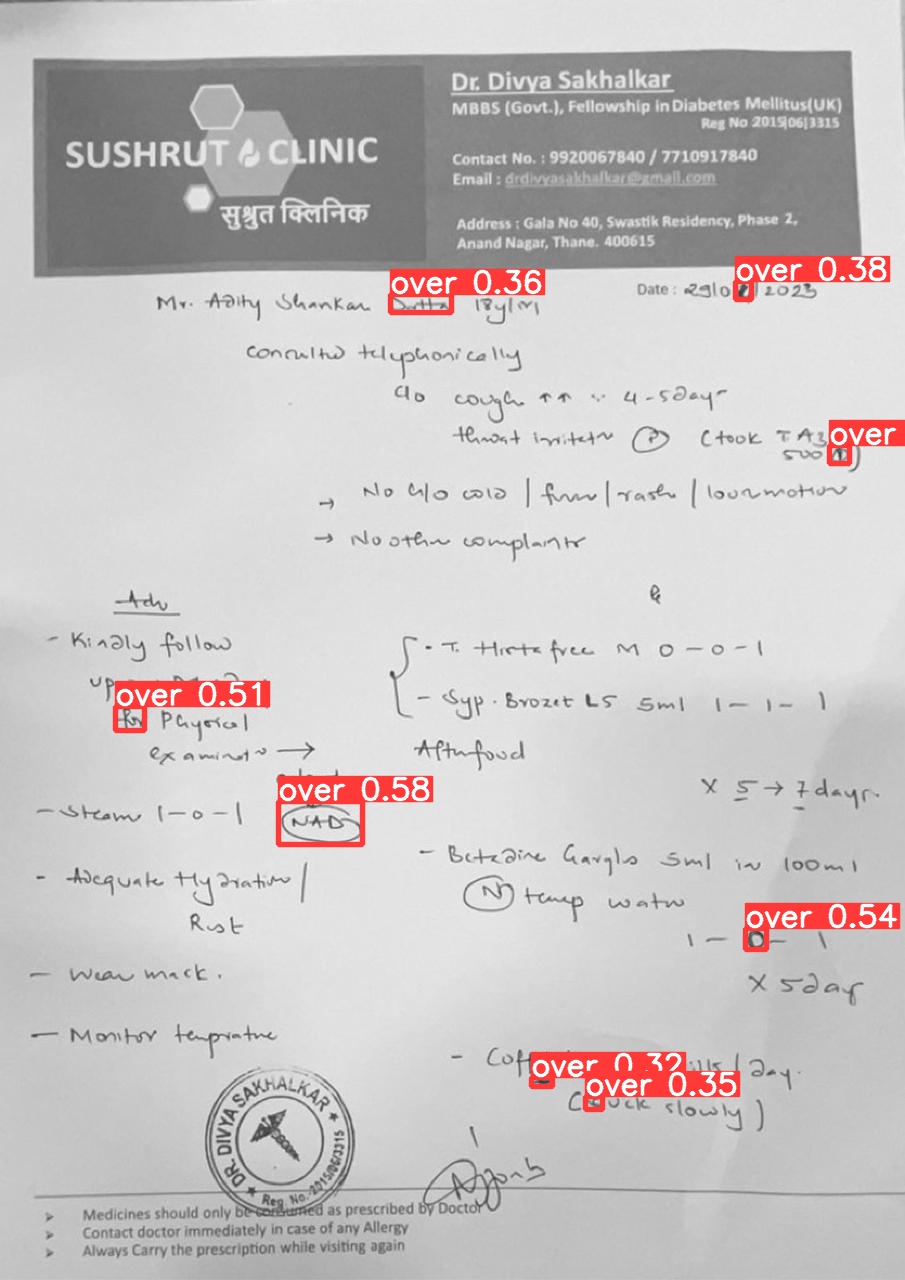 Dr. Divya Sakhalkar
MBBS (Govt.), Fellowship in Diabetes Mellitus(UK)
Reg No 2015|06|3315
SUSHRUT CLINIC
सुश्रुत क्लिनिक
Contact No. : 9920067840 / 7710917840
Email : drdivyasakhalkar@gmail.com
Address : Gala No 40, Swastik Residency, Phase 2,
Anand Nagar, Thane. 400615
over 0.36
over 0.38
Date : 29/0 /2023
Mr. Adity Shankar Dutta 18y/M
Consulted telephonically
c/o cough ↑↑ 4-5 day
throat irritatn (took T.
over
500
→ No c/o cold / fever / rash / loosemotion
→ No other complaints
Adv
- Kindly follow
up
over 0.51
for Physical
examinatn →
over 0.58
- Steam 1-0-1 NAD
- Adequate Hydration /
Rest
- Wear mask.
- Monitor temprature
T. Histafree M 0-0-1
- Syp. Brozet LS 5ml 1-1-1
After food
x 5 → 7 days.
- Betadine Gargles 5ml in 100ml
(N) temp water
over 0.54
1-0-1
x 5 day
over 0.32
/ day.
over 0.35
(suck slowly)
DR. DIVYA SAKHALKAR
Reg. No.-2015/06/3315
➤ Medicines should only be consumed as prescribed by Doctor
➤ Contact doctor immediately in case of any Allergy
➤ Always Carry the prescription while visiting again